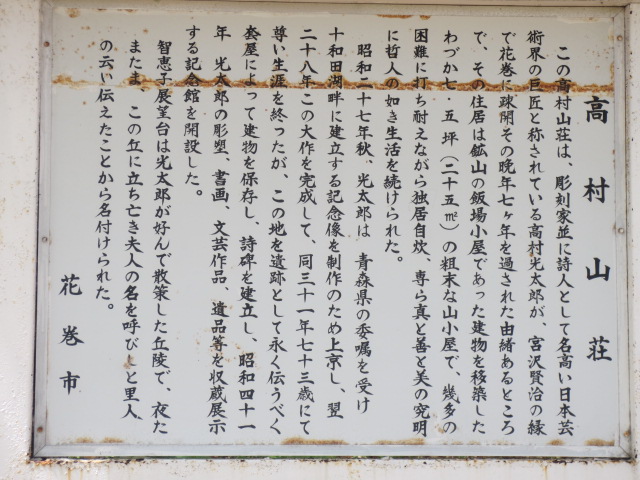 高村山荘
この高村山荘は、彫刻家並に詩人として名高い日本芸
術界の巨匠と称されている高村光太郎が、宮沢賢治の縁
で花巻に疎開その晩年七ヶ年を過された由緒あるところ
で、その住居は鉱山の飯場小屋であった建物を移築した
わづか七・五坪（二十五㎡）の粗末な山小屋で、幾多の
困難に打ち耐えながら独居自炊、専ら真と善と美の究明
に哲人の如き生活を続けられた。
昭和二十七年秋、光太郎は 青森県の委嘱を受け
十和田湖畔に建立する記念像を制作のため上京し、翌
二十八年この大作を完成して、同三十一年七十三歳にて
尊い生涯を終ったが、この地を遺跡として永く伝うべく
套屋によって建物を保存し、詩碑を建立し、昭和四十一
年 光太郎の彫塑、書画、文芸作品、遺品等を収蔵展示
する記念館を開設した。
智恵子展望台は光太郎が好んで散策した丘陵で、夜た
またま この丘に立ち亡き夫人の名を呼びしと里人
の云い伝えたことから名付けられた。
花巻市